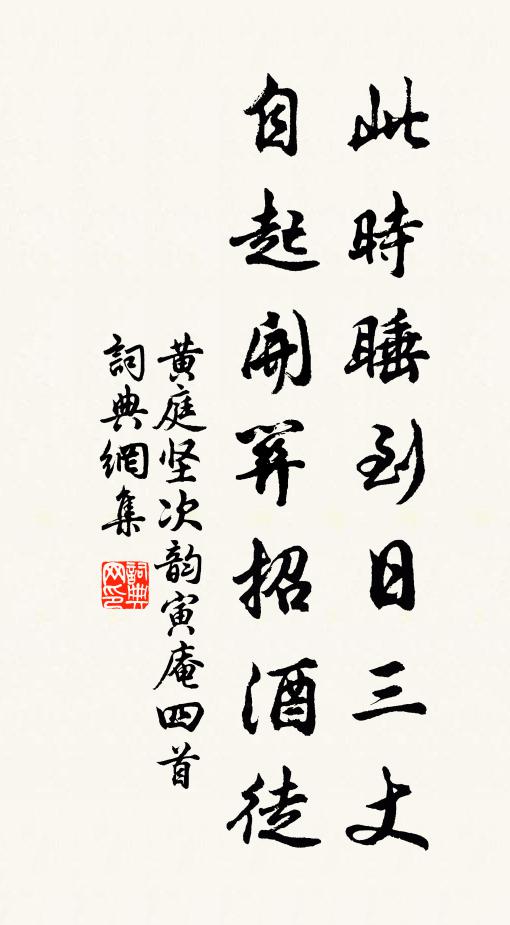 此時睡到日三丈
自起開關招酒徒
黄庭坚次韵寅庵四首
詞典網集
詞典網印